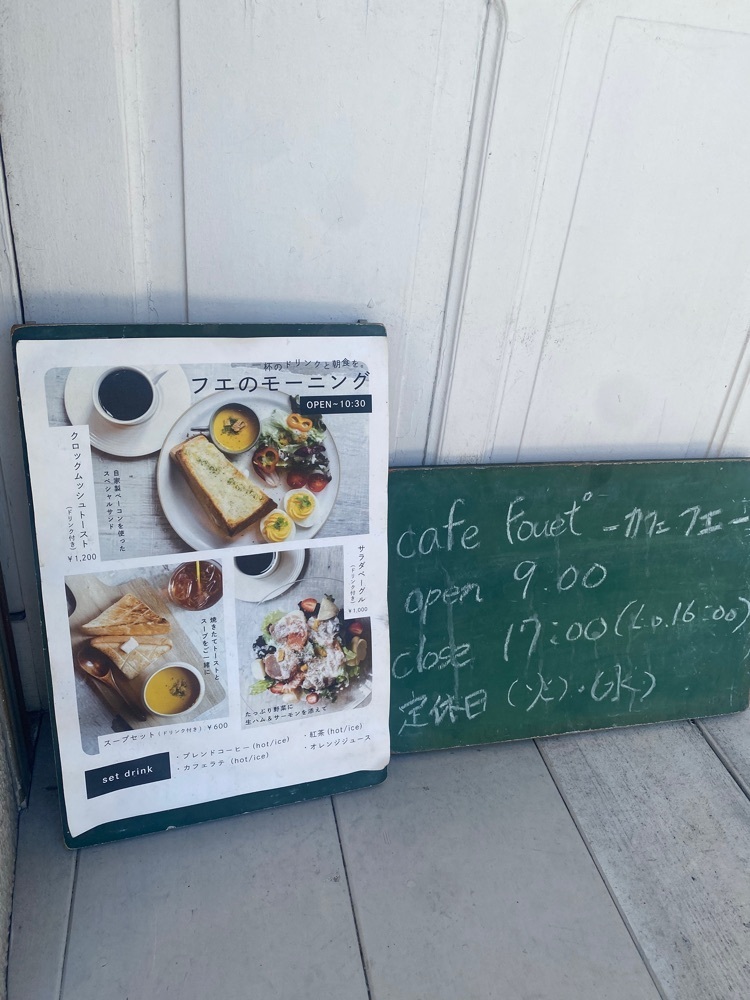 杯のドリンクと朝食を。
フエのモーニング
OPEN~10:30
クロックムッシュトースト
(ドリンク付き)
¥1,200
自家製ベーコンを使った
スペシャルサンド
サラダベーグル
(ドリンク付き)
¥1,000
たっぷり野菜に
生ハム&サーモンを添えて
焼きたてトーストと
スープをご一緒に
スープセット(ドリンク付き) ¥600
set drink
・ブレンドコーヒー(hot/ice)
・カフェラテ (hot/ice)
・紅茶(hot/ice)
・オレンジジュース
cafe Fouet° -カフェ フエ-
open 9:00
close 17:00(L.o.16:00)
定休日 (火)・(水)